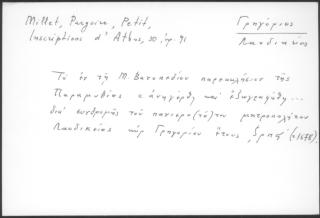 Millet, Pargoire, Petit,
Inscriptions d' Athos, 30, ἀρ. 91
Γρηγόριος
Λαοδικείας
Τὸ ἐν τῇ Μ. Βατοπεδίου παρεκκλήσιον τῆς
Παραμυθίας « ἀνηγέρθη καὶ ἐζωγραφήθη...
διὰ συνδρομῆς τοῦ πανιερω(τά)του μητροπολίτου
Λαοδικείας κὺρ Γρηγορίου ἔτους ͵ζρπϛ' (=1678).